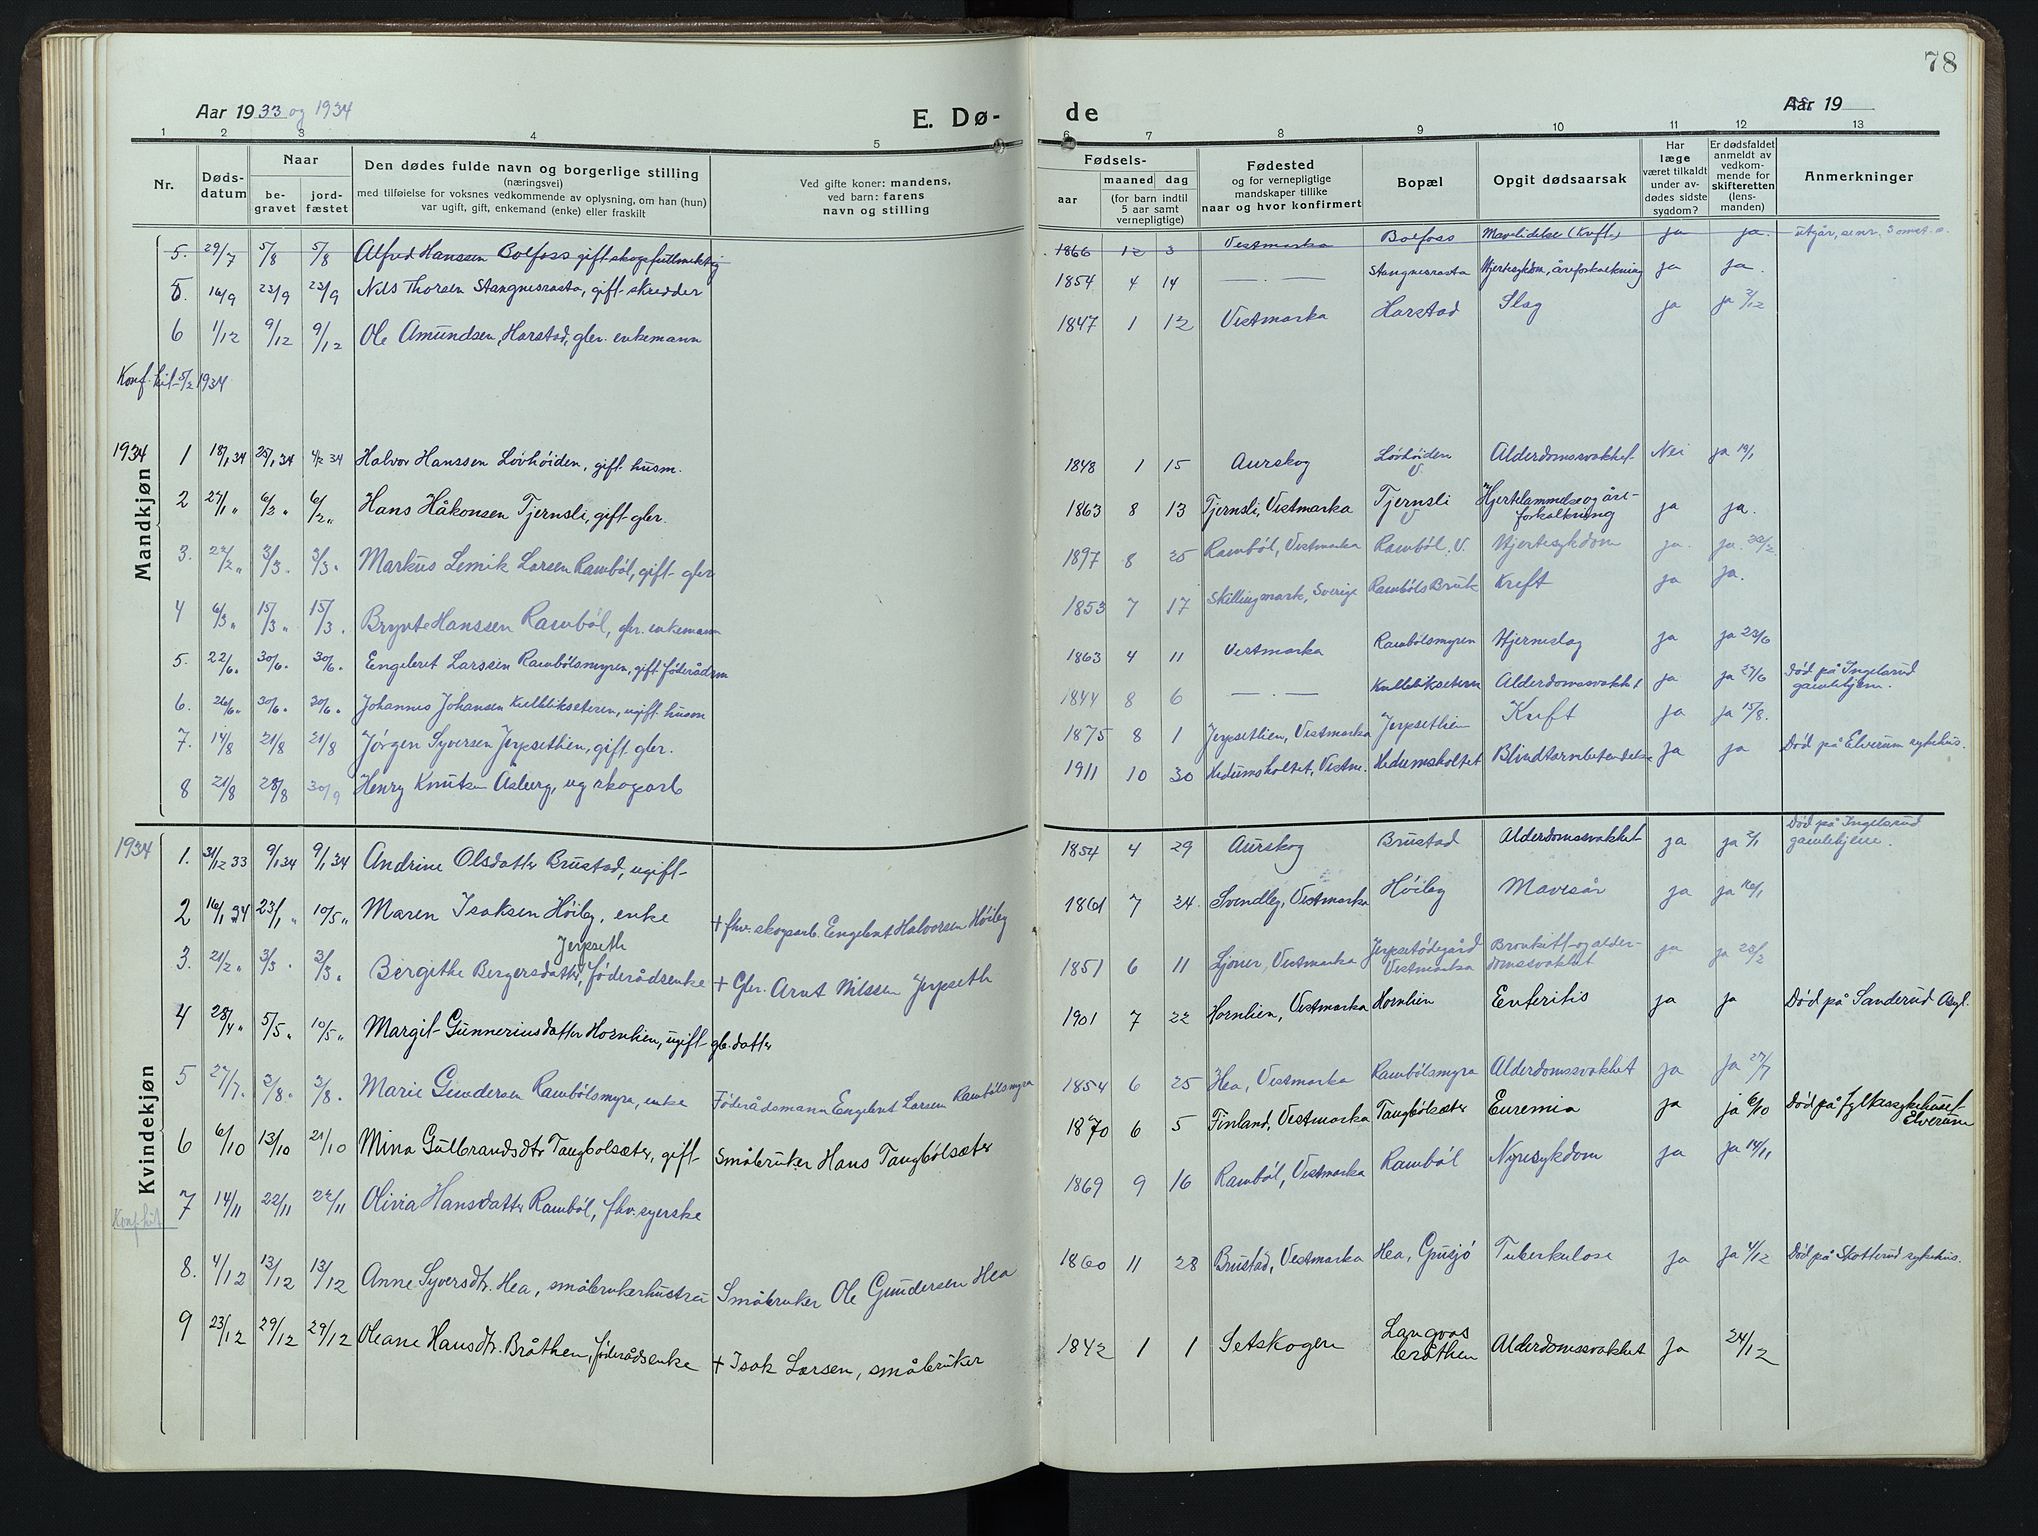 78
Aar 1933 og 1934
E. Dø-
de
Aar 19
1 2 3 4 5 6 7 8 9 10 11 12 13
Nr.
Døds-
datum
Naar
be-
gravet
jord-
fæstet
Den dødes fulde navn og borgerlige stilling
(næringsvei)
med tilføielse for voksnes vedkommende av oplysning, om han (hun)
var ugift, gift, enkemand (enke) eller fraskilt
Ved gifte koner: mandens,
ved barn: farens
navn og stilling
Fødsels-
aar
maaned dag
(for barn indtil
5 aar samt
vernepligtige)
Fødested
og for vernepligtige
mandskaper tillike
naar og hvor konfirmert
Bopæl
Opgit dødsaarsak
Har
læge
været tilkaldt
under av-
dødes sidste
sygdom?
Er dødsfaldet
anmeldt av
vedkom-
mende for
skifteretten
(lens-
manden)
Anmerkninger
5. 29/7 5/8 5/8 Alfred Hanssen Bolfoss gift skogsfullmektig 1866 12 3 Vestmarka Bolfoss Mavelidelse (Kreft) ja ja. utgår, se nr. 3
5. 16/9 23/9 23/9 Nils Thorsen Stangnesrasta, gift skredder 1854 4 14 — . — Stangnesrasta Hjertesykdom, åreforkalkning ja ja.
6 1/12 9/12 9/12 Ole Amundsen, Harstad, gbr. enkemann 1847 1 12 Vestmarka Harstad Slag ja ja 2/12
Konf. hit 5/2 1934
1934
Mandkjøn
1 18/1 34 25/1 34 4/2 34 Halvor Hanssen Lövhöiden, gift husm. 1848 1 15 Aurskog Lövhöiden V Alderdomssvakhet Nei ja 19/1
2 27/1 " 6/2 " 6/2 " Hans Håkonsen Tjernsli, gift gbr. 1863 8 13 Tjernsli, Vestmarka Tjernsli V Hjertelammelse og åre-
forkalkning ja ja.
3. 22/2 " 3/3 . 3/3 . Markus Lemik Larsen Rambøl, gift gbr 1897 8 25 Rambøl, Vestmarka Rambøl, V. Hjertesykdom ja. ja.
4 6/3 " 15/3 " 15/3 . Brynte Hanssen Rambøl, gbr. enkemann 1853 7 17 Skillingmark, Sverige Rambøls Bruk Kreft ja ja.
5. 22/6. 30/6. 30/6. Engebret Larssen Rambølsmyren, gift føderådsm 1863 4 11 Vestmarka Rambølsmyren Hjerneslag ja ja 23/6
6. 26/6. 30/6. 30/6. Johannes Johansen Kulblikseteren, ugift husm 1844 8 6 — . — Kulblikseteren Alderdomssvakhet ja ja 27/6 Død på Ingelsrud
gamlehjem.
7. 14/8 21/8 21/8 Jørgen Syversen Jerpsethlien, gift gbr. 1875 8 1 Jerpsetlien, Vestmarka Jerpsetlien Kreft ja ja 15/8.
8 21/8 28/8 30/9 Henry Knutsen Åsberg, ug skogsarb 1911 10 30 Hedumsholtet, Vestm. Hedumsholtet Blindtarmbetendelse ja ja Død på Elverum sykehus.
1934
Kvindekjøn
1. 31/12 33 9/1 34 9/1 34 Andrine Olsdatter Brustad, ugift 1854 4 29 Aurskog Brustad Alderdomssvakhet ja ja 2/1 Død på Ingelsrud
gamlehjem.
2 16/1 34 23/1 " 10/5 " Maren Isaksen Høiby, enke + fhv. skogsarb. Engebret Halvorsen Høiby 1861 7 24. Svendby, Vestmarka Høiby Mavesår ja ja 16/1
3. 21/2 " 3/3 . 3/3 . Bergithe Bergersdatter Jerpseth, føderådsenke + Gbr. Arnt Nilssen Jerpseth 1851 6 11 Ljøner, Vestmarka Jerpsetødegård
Vestmarka Bronkitt og alder-
domssvakhet ja ja 28/2
4 28/4 " 5/5 " 10/5 " Margit Gunneriusdatter Hornlien, ugift gb. datter 1901 7 22 Hornlien, Vestmarka Hornlien Enteritis ja ja Død på Sanderud Asyl.
5 27/7. 2/8. 2/8. Marie Gundersen Rambølsmyra, enke Føderådsmann Engebret Larsen Rambølsmyra 1854 6 25 Hea, Vestmarka Rambølsmyra Alderdomssvakhet ja ja 27/7
6 6/10 13/10 21/10 Mina Gulbrandsdtr Tangbølsæter, gift Småbruker Hans Tangbølsæter 1870 6 5 Finland, Vestmarka Tangbølsæter Euremia ja ja 6/10 Død på fylkessykehuset
Elverum
7 14/11 22/11 22/11 Olivia Hansdatter Rambøl, fhv. syerske 1869 9 16 Rambøl, Vestmarka Rambøl Nyresykdom ja ja 14/11
Konf. hit
8. 4/12 13/12 13/12 Anne Syversdtr. Hea, småbrukerhustru Småbruker Ole Gundersen Hea 1860 11 28 Brustad, Vestmarka Hea, Gpusjö Tuberkulose ja ja 4/12 Død på Skotterud sykehus.
9 23/12 29/12 29/12 Oleane Hansdtr. Bråthen, føderådsenke + Isak Larsen, småbruker 1842 1 1 Setskogen Langvas
bråthen Alderdomssvakhet ja 24/12